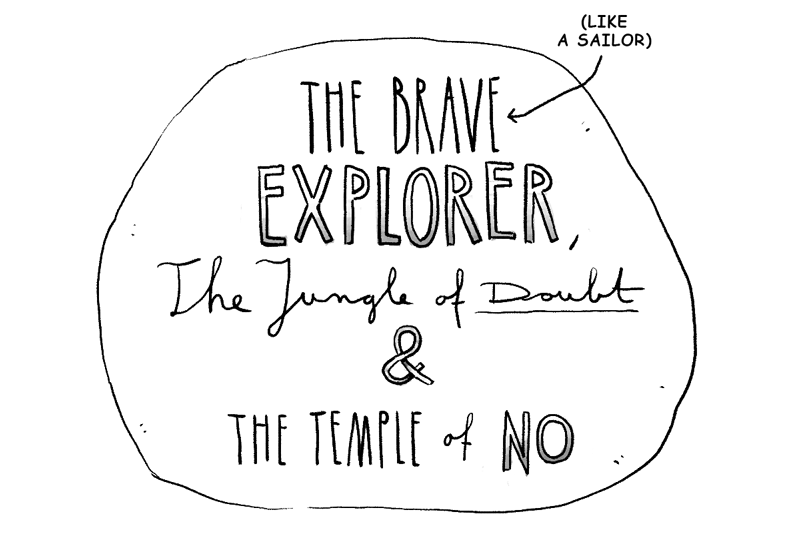 (LIKE
A SAILOR)
THE BRAVE
EXPLORER,
The Jungle of Doubt
&
THE TEMPLE of NO